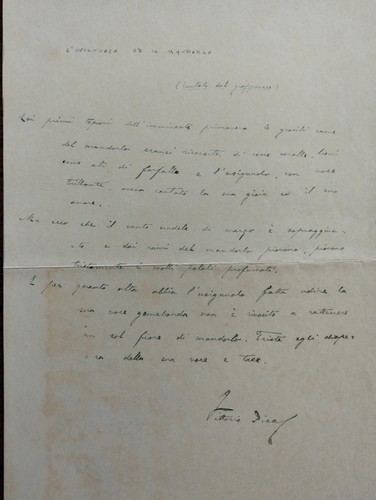 L'USIGNUOLO ED IL MANDORLO
(imitato dal giapponese)
Coi primi tepori dell'imminente primavera le gracili rame
del mandorlo eransi rivestite di rosee, lievi
come ali di farfalla e l'usignuolo, con voce
trillante, aveva cantato la sua gioia ed il suo
amore.
Ma ecco che il vento crudele di marzo è sopraggiun-
to e dai rami del mandorlo piovono, piovono
tristamente i molli petali profumati.
E per quanto alto abbia l'usignuolo fatto udire la
sua voce gemebonda non è riuscito a rattenere
un sol fiore di mandorlo. Triste egli dispe-
ra della sua voce e tace.
Vittorio Pica